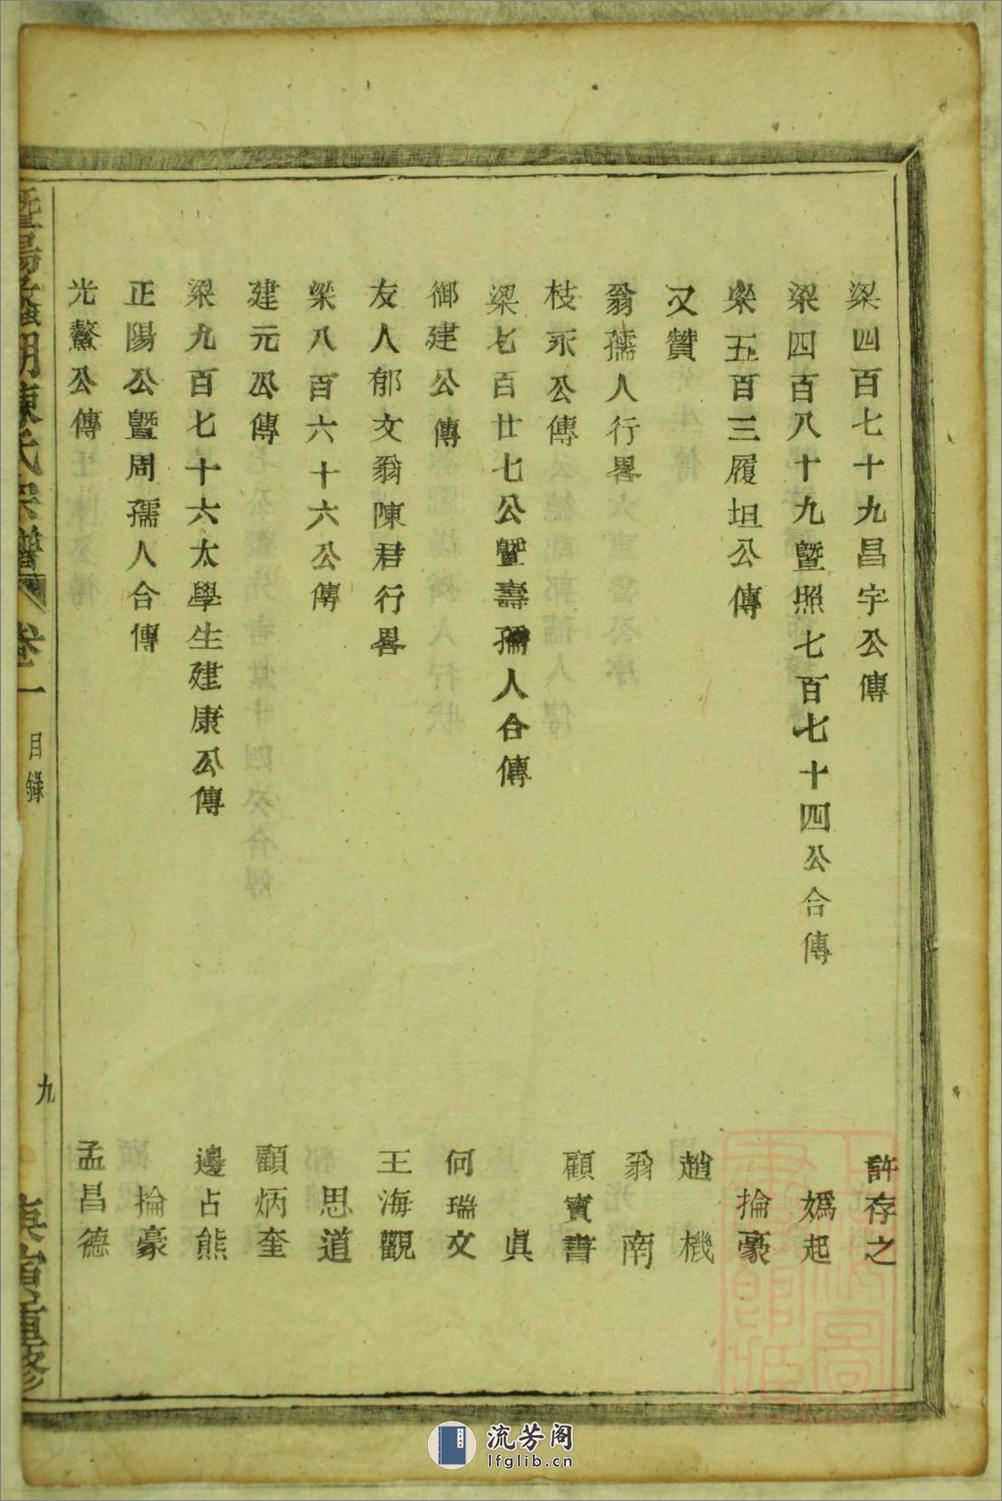 梁四百七十九昌宇公傳 許存之
梁四百八十九暨照七百七十四公合傳 嬀起
梁五百三履坦公傳 掄豪
又贊 趙機
翁孺人行畧 翁南
枝永公傳 顧寳書
梁七百廿七公暨壽孺人合傳 眞
御建公傳 何瑞文
友人郁文翁陳君行畧 王海觀
梁八百六十六公傳 思道
建元公傳 顧炳奎
梁九百七十六太學生建康公傳 邊占熊
正陽公暨周孺人合傳 掄豪
光鰲公傳 孟昌德
暨陽湖陳氏宗譜 卷一 目録 九 庚寅重修
流芳阁
lfglib.cn